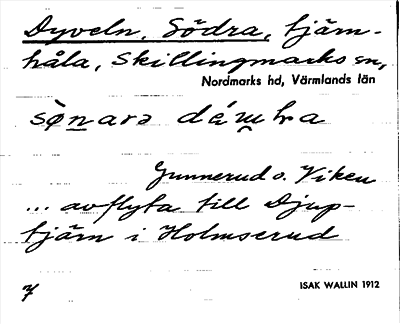 Dyveln, Södra, tjärn-
håla, Skillingmarks sn,
Nordmarks hd, Värmlands län
Gunnerud o. Viken
... avflyta till Djup-
tjärn i Holmserud
ISAK WALLIN 1912